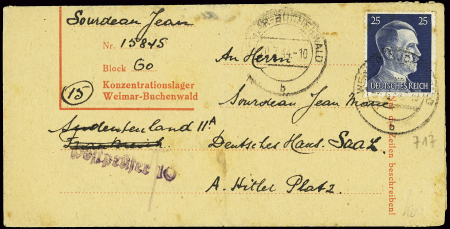 Sourdean Jean
Nr. 15845
Block 60
Konzentrationslager
Weimar-Buchenwald
15
BUCHENWALD
44.-10
b
25 25
DEUTSCHES REICH
An Herrn
Sourdean Jean Marie
Sudetenland 11A
Deutsches Haus. Saaz
Frankreich
Postprüfer 10
A. Hitler Platz.
en beschreiben!
717